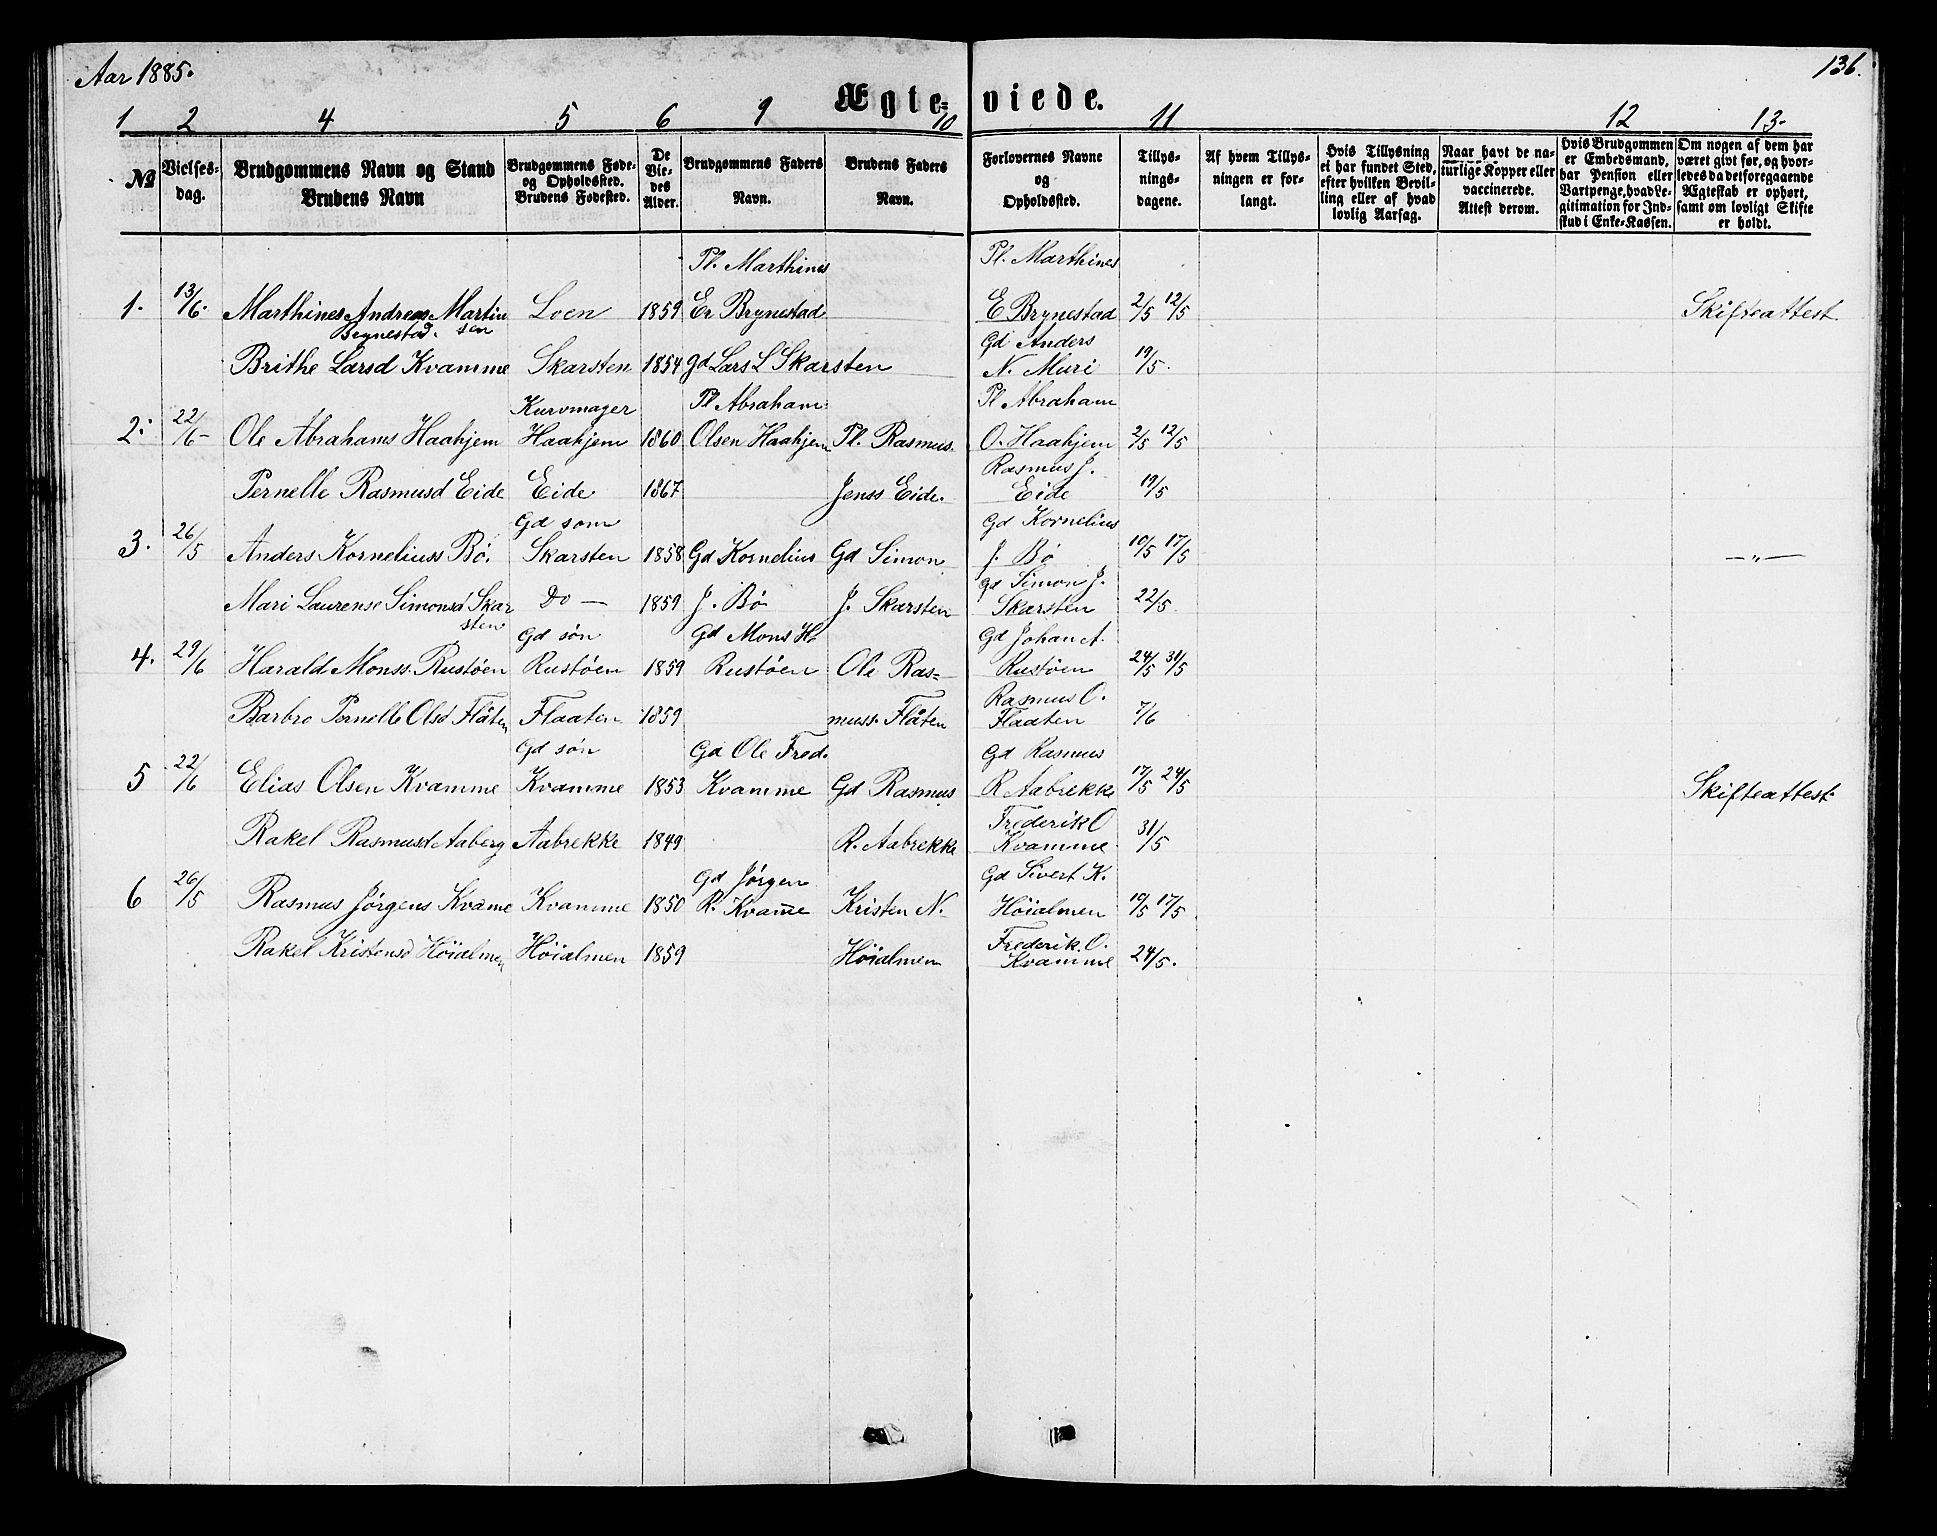 Aar 1885.
136.
Ægte=viede.
1 2 4 5 6 9 10 11 12 13.
№
Vielses-
dag.
Brudgommens Navn og Stand
Brudens Navn
Brudgommens Føde-
og Opholdssted.
Brudens Fødested.
De
Vie-
des
Alder.
Brudgommens Faders
Navn.
Brudens Faders
Navn.
Forlovernes Navne
og
Opholdssted.
Tillys-
nings-
dagene.
Af hvem Tillys-
ningen er for-
langt.
Hvis Tillysning
ei har fundet Sted,
efter hvilken Bevil-
ling eller af hvad
lovlig Aarsag.
Naar havt de na-
turlige Kopper eller
vaccinerede.
Attest derom.
Hvis Brudgommen
er Embedsmand,
har Pension eller
Vartpenge, hvad Le-
gitimation for Ind-
skud i Enke-Kassen.
Om nogen af dem har
været givt før, og hvor-
ledes da det foregaaende
Ægteskab er ophørt,
samt om lovligt Skifte
er holdt.
Pl. Marthines Pl. Marthines
1. 13/6. Marthines Andreas Martin Loen 1859 Er Brynestad E Brynestad 2/5 12/5 Skifteattest
Brynestad. sen Gd Anders
Brithe Larsd Kvamme Skarsten 1854 Gd Lars L Skarsten N. Muri 19/5.
Kurvmager Pl Abraham Pl Abraham
2. 22/6 Ole Abrahams Haahjem Haahjem 1860 Olsen Haahjem Pl. Rasmus. O. Haahjem 2/5 12/5
Rasmus J.
Pernelle Rasmusd Eide Eide 1867 Jenss Eide. Eide 19/5
Gd som Gd Kornelius
3. 26/5 Anders Korneliuss Bö. Skarsten 1858 Gd Kornelius Gd Simon J. Bö 10/5 17/5 — „ —
Gd Simon J.
Mari Laurense Simonsd Skar Do — 1859 J. Bö J. Skarsten Skarsten 22/5
sten Gd søn Gd Mons H Gd Johan A.
4. 29/6 Harald Monss. Rustöen Rustöen 1859 Rustöen Ole Ras= Rustöen 24/5 31/5
Rasmus O.
Barbro Pernelle Olsd Flåten Flaaten 1859 muss. Flåten Flaaten 7/6
Gd søn Gd Ole Fred. Gd Rasmus
5 22/6 Elias Olsen Kvamme Kvamme 1853 Kvamme Gd Rasmus R Aabrekke 17/5 24/5 Skifteattest
Frederik O
Rakel Rasmusd Aaberg Aabrekke 1849 R. Aabrekke Kvamme. 31/5
Gd Jörgen Gd Sivert K.
6 26/5 Rasmus Jörgens Kvame Kvamme 1850 R. Kvame Kristen N. Höialmen 10/5 17/5.
Frederik. O.
Rakel Kristensd Höialmen Höialmen 1859 Höialmen Kvamme 24/5.